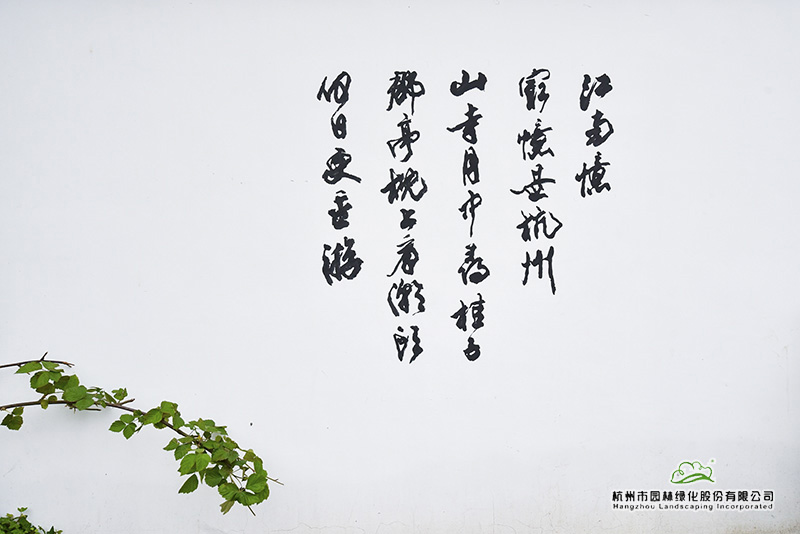 江南憶
最憶是杭州
山寺月中尋桂子
郡亭枕上看潮頭
何日更重游
杭州市园林绿化股份有限公司
Hangzhou Landscaping Incorporated